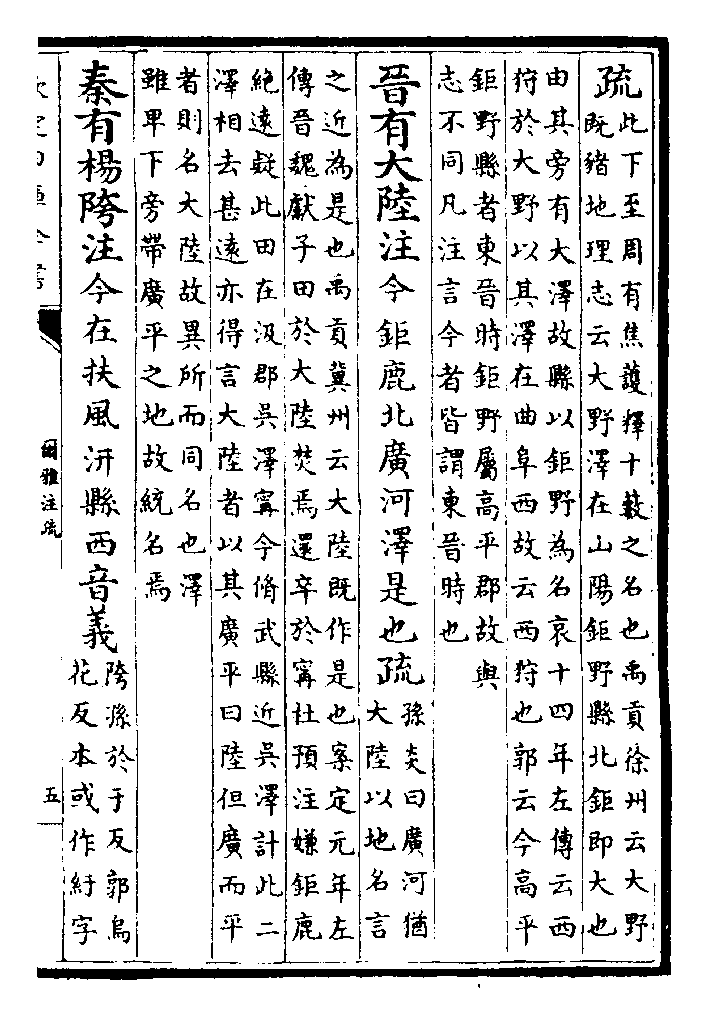 疏此下至周有焦護釋十藪之名也禹貢徐州云大野
既豬地理志云大野澤在山陽鉅野縣北鉅即大也
由其旁有大澤故縣以鉅野為名哀十四年左傳云西
狩於大野以其澤在曲阜西故云西狩也郭云今高平
鉅野縣者東晉時鉅野屬高平郡故與
志不同凡注言今者皆謂東晉時也
晉有大陸注今鉅鹿北廣河澤是也疏孫炎曰廣河猶
大陸以地名言
之近為是也禹貢冀州云大陸既作是也案定元年左
傳晉魏獻子田於大陸焚焉還卒於甯杜預注嫌鉅鹿
絶遠疑此田在汲郡吳澤甯今脩武縣近吳澤計此二
澤相去甚遠亦得言大陸者以其廣平曰陸但廣而平
者則名大陸故異所而同名也澤
雖卑下旁帶廣平之地故統名焉
秦有楊陓注今在扶風汧縣西音義陓孫於于反郭烏
花反本或作紆字
欽定四庫全書
爾雅注疏
五